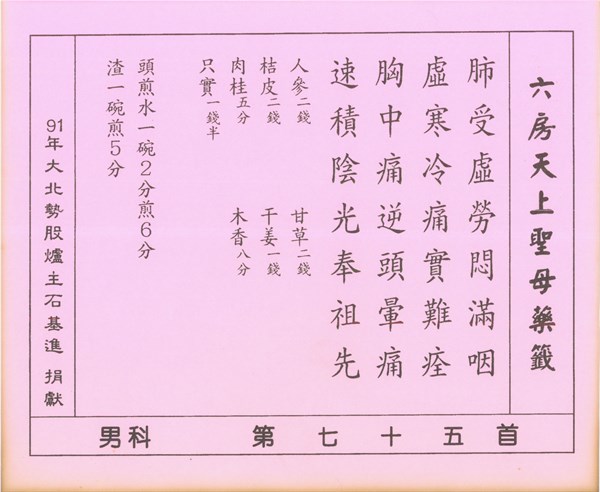 六房天上聖母藥籤
肺受虛勞悶滿咽
虛寒冷痛實難痊
胸中痛逆頭暈痛
速積陰光奉祖先
人參二錢 甘草二錢
桔皮二錢 干姜一錢
肉桂五分 木香八分
只實一錢半
頭煎水一碗2分煎6分
渣一碗煎5分
91年大北勢股爐主石基進 捐獻
男科 第七十五首